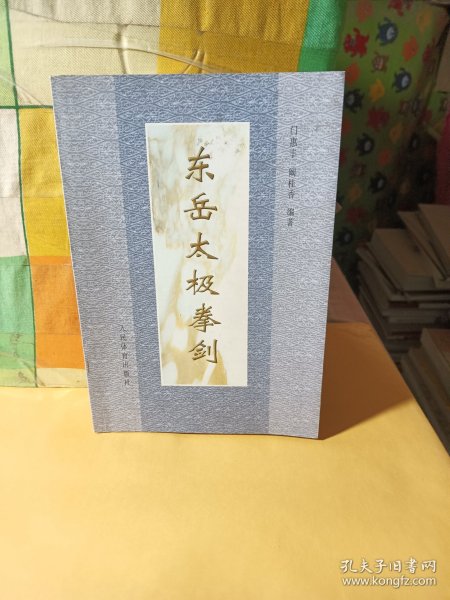 东岳太极拳剑
门惠丰 阚桂香 编著
人民体育出版社
孔夫子旧书网
www.kongfz.com